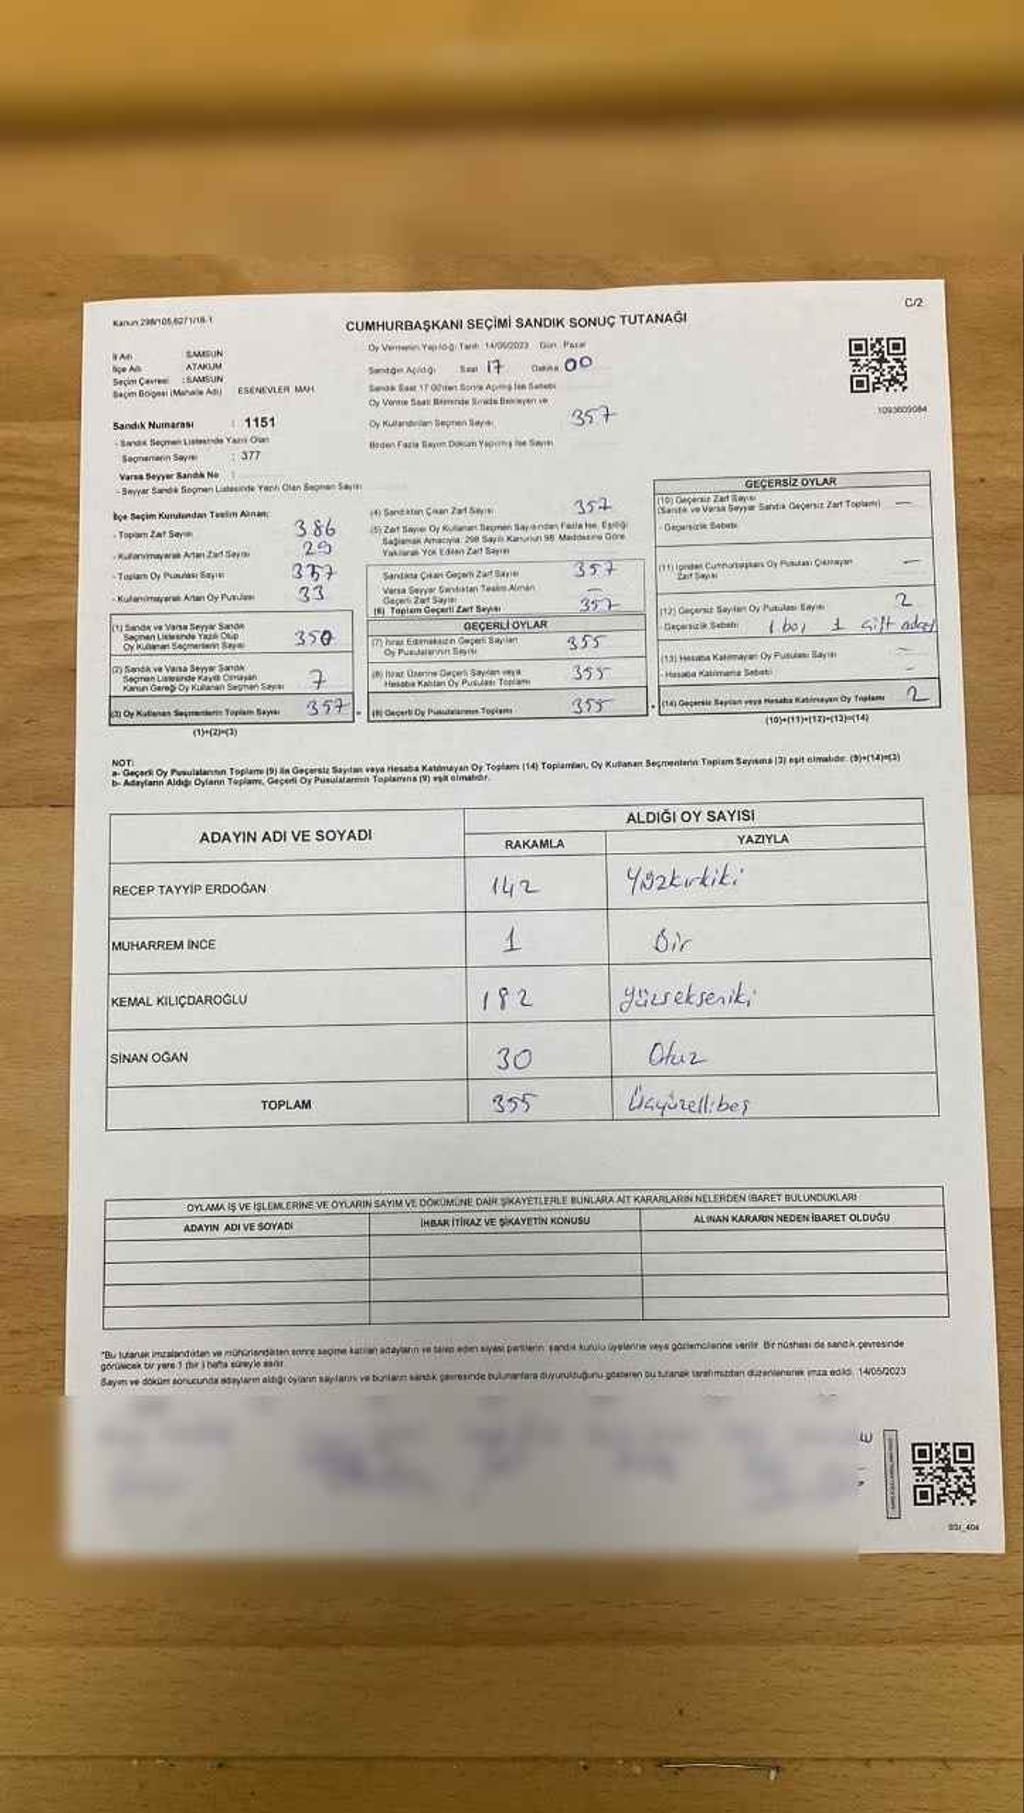 Kanun 298/105,6271/18-1
C/2
CUMHURBAŞKANI SEÇİMİ SANDIK SONUÇ TUTANAĞI
İl Adı SAMSUN
İlçe Adı ATAKUM
Seçim Çevresi : SAMSUN
Seçim Bölgesi (Mahalle Adı) ESENEVLER MAH.
Sandık Numarası : 1151
- Sandık Seçmen Listesinde Yazılı Olan
Seçmenlerin Sayısı : 377
Varsa Seyyar Sandık No :
- Seyyar Sandık Seçmen Listesinde Yazılı Olan Seçmen Sayısı
Oy Vermenin Yapıldığı Tarih 14/05/2023 Gün : Pazar
Sandığın Açıldığı Saat 17 Dakika 00
Sandık Saat 17.00'den Sonra Açılmış İse Sebebi
Oy Verme Saati Bitiminde Sırada Bekleyen ve
Oy Kullandırılan Seçmen Sayısı 357
Birden Fazla Sayım Döküm Yapılmış İse Sayısı
1093609084
İlçe Seçim Kurulundan Teslim Alınan:
- Toplam Zarf Sayısı 386
- Kullanılmayarak Artan Zarf Sayısı 29
- Toplam Oy Pusulası Sayısı
- Kullanılmayarak Artan Oy Pusulası 33
(1) Sandık ve Varsa Seyyar Sandık
Seçmen Listesinde Yazılı Olup
Oy Kullanan Seçmenlerin Sayısı 350
(2) Sandık ve Varsa Seyyar Sandık
Seçmen Listesinde Kayıtlı Olmayan
Kanun Gereği Oy Kullanan Seçmen Sayısı 7
(3) Oy Kullanan Seçmenlerin Toplam Sayısı 357
(1)+(2)=(3)
(4) Sandıktan Çıkan Zarf Sayısı 357
(5) Zarf Sayısı Oy Kullanan Seçmen Sayısından Fazla İse, Eşitliği
Sağlamak Amacıyla; 298 Sayılı Kanunun 98. Maddesine Göre
Yakılarak Yok Edilen Zarf Sayısı
Sandıkta Çıkan Geçerli Zarf Sayısı 357
Varsa Seyyar Sandıktan Teslim Alınan
Geçerli Zarf Sayısı –
(6) Toplam Geçerli Zarf Sayısı 357
GEÇERLİ OYLAR
(7) İtiraz Edilmeksizin Geçerli Sayılan
Oy Pusulalarının Sayısı 355
(8) İtiraz Üzerine Geçerli Sayılan veya
Hesaba Katılan Oy Pusulası Toplamı 355
(9) Geçerli Oy Pusulalarının Toplamı 355
GEÇERSİZ OYLAR
(10) Geçersiz Zarf Sayısı
(Sandık ve Varsa Seyyar Sandık Geçersiz Zarf Toplamı) —
- Geçersizlik Sebebi
(11) İçinden Cumhurbaşkanı Oy Pusulası Çıkmayan
Zarf Sayısı —
(12) Geçersiz Sayılan Oy Pusulası Sayısı 2
- Geçersizlik Sebebi 1 boş 1 çift aday
(13) Hesaba Katılmayan Oy Pusulası Sayısı –
- Hesaba Katılmama Sebebi –
(14) Geçersiz Sayılan veya Hesaba Katılmayan Oy Toplamı 2
(10)+(11)+(12)+(13)=(14)
NOT:
a- Geçerli Oy Pusulalarının Toplamı (9) ile Geçersiz Sayılan veya Hesaba Katılmayan Oy Toplamı (14) Toplamları, Oy Kullanan Seçmenlerin Toplam Sayısına (3) eşit olmalıdır. (9)+(14)=(3)
b- Adayların Aldığı Oyların Toplamı, Geçerli Oy Pusulalarının Toplamına (9) eşit olmalıdır.
ADAYIN ADI VE SOYADI
ALDIĞI OY SAYISI
RAKAMLA YAZIYLA
RECEP TAYYİP ERDOĞAN 142 Yüzkırkiki
MUHARREM İNCE 1 Bir
KEMAL KILIÇDAROĞLU 182 yüzsekseniki
SİNAN OĞAN 30 Otuz
TOPLAM 355 Üçyüzellibeş
OYLAMA İŞ VE İŞLEMLERİNE VE OYLARIN SAYIM VE DÖKÜMÜNE DAİR ŞİKAYETLERLE BUNLARA AİT KARARLARIN NELERDEN İBARET BULUNDUKLARI
ADAYIN ADI VE SOYADI İHBAR İTİRAZ VE ŞİKAYETİN KONUSU ALINAN KARARIN NEDEN İBARET OLDUĞU
*Bu tutanak imzalandıktan ve mühürlendikten sonra seçime katılan adayların ve talep eden siyasi partilerin sandık kurulu üyelerine veya gözlemcilerine verilir. Bir nüshası da sandık çevresinde
görülecek bir yere 1 (bir) hafta süreyle asılır.
Sayım ve döküm sonucunda adayların aldığı oyların sayılarını ve bunların sandık çevresinde bulunanlara duyurulduğunu gösteren bu tutanak tarafımızdan düzenlenerek imza edildi. 14/05/2023